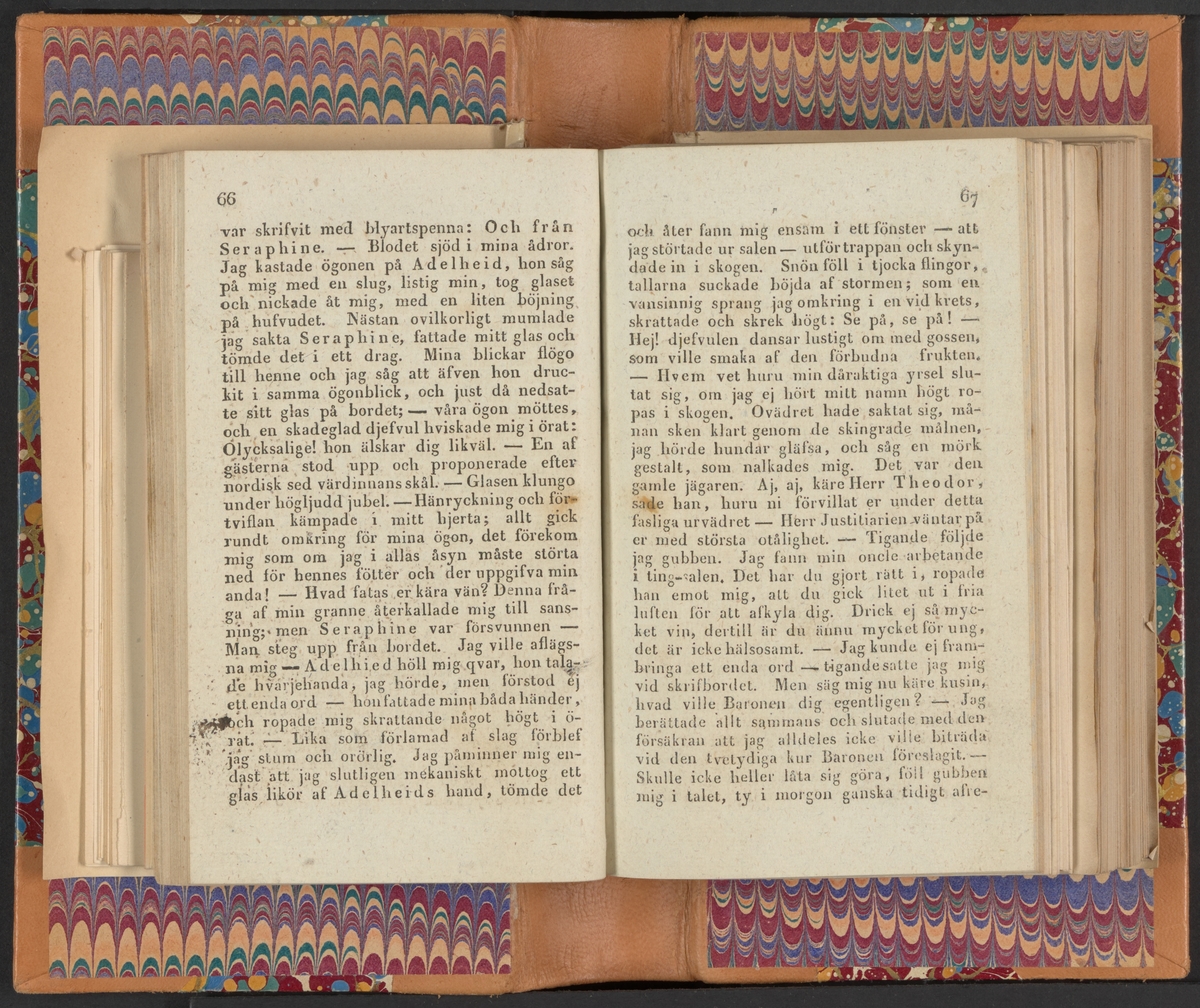 66
var skrifvit med blyartspenna: Och från
Seraphine. — Blodet sjöd i mina ådror.
Jag kastade ögonen på Adelheid, hon såg
på mig med en slug, listig min, tog glaset
och nickade åt mig, med en liten böjning
på hufvudet. Nästan ovilkorligt mumlade
jag sakta Seraphine, fattade mitt glas och
tömde det i ett drag. Mina blickar flögo
till henne och jag såg att äfven hon druc-
kit i samma ögonblick, och just då nedsat-
te sitt glas på bordet; — våra ögon möttes,
och en skadeglad djefvul hviskade mig i örat:
Olycksalige! hon älskar dig likväl. — En af
gästerna stod upp och proponerade efter
nordisk sed värdinnans skål. — Glasen klungo
under högljudd jubel. — Hänryckning och för-
tviflan kämpade i mitt hjerta; allt gick
rundt omkring för mina ögon, det förekom
mig som om jag i allas åsyn måste störta
ned för hennes fötter och der uppgifva min
anda! — Hvad fatas er kära vän? Denna frå-
ga af min granne återkallade mig till sans-
ning; men Seraphine var försvunnen —
Man steg upp från bordet. Jag ville aflägs-
na mig — Adelhied höll mig qvar, hon tala-
de hvarjehanda, jag hörde, men förstod ej
ett enda ord — hon fattade mina båda händer,
och ropade mig skrattande något högt i ö-
rat. — Lika som förlamad af slag förblef
jag stum och orörlig. Jag påminner mig en-
dast att jag slutligen mekaniskt mottog ett
glas likör af Adelheids hand, tömde det
67
och åter fann mig ensam i ett fönster — att
jag störtade ur salen — utför trappan och skyn-
dade in i skogen. Snön föll i tjocka flingor,
tallarna suckade böjda af stormen; som en
vansinnig sprang jag omkring i en vid krets,
skrattade och skrek högt: Se på, se på! —
Hej! djefvulen dansar lustigt om med gossen,
som ville smaka af den förbudna frukten.
— Hvem vet huru min dåraktiga yrsel slu-
tat sig, om jag ej hört mitt namn högt ro-
pas i skogen. Ovädret hade saktat sig, må-
nan sken klart genom de skingrade målnen,
jag hörde hundar gläfsa, och såg en mörk
gestalt, som nalkades mig. Det var den
gamle jägaren. Aj, aj, käre Herr Theodor,
sade han, huru ni förvillat er under detta
fasliga urvädret — Herr Justitiarien väntar på
er med största otålighet. — Tigande följde
jag gubben. Jag fann min oncle arbetande
i ting-salen. Det har du gjort rätt i, ropade
han emot mig, att du gick litet ut i fria
luften för att afkyla dig. Drick ej så myc-
ket vin, dertill är du ännu mycket för ung,
det är icke hälsosamt. — Jag kunde ej fram-
bringa ett enda ord — tigande satte jag mig
vid skrifbordet. Men säg mig nu käre kusin,
hvad ville Baronen dig egentligen? — Jag
berättade allt sammans och slutade med den
försäkran att jag alldeles icke ville biträda
vid den tvetydiga kur Baronen föreslagit. —
Skulle icke heller låta sig göra, föll gubben
mig i talet, ty i morgon ganska tidigt afre-